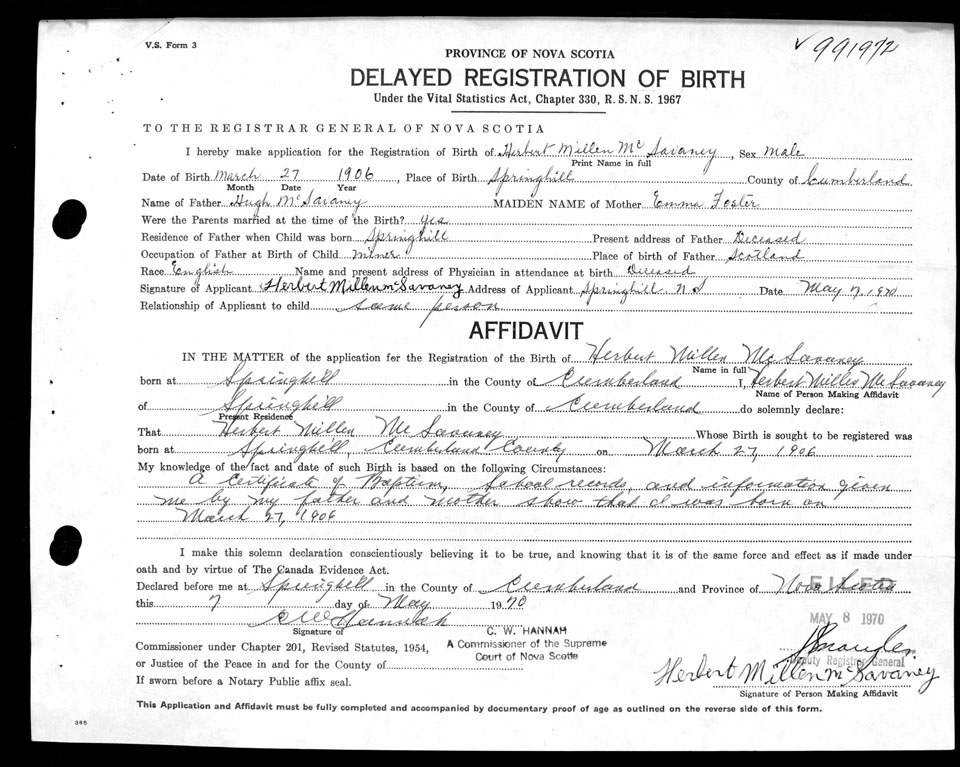 V.S. Form 3
✓ 991972
PROVINCE OF NOVA SCOTIA
DELAYED REGISTRATION OF BIRTH
Under the Vital Statistics Act, Chapter 330, R. S. N. S. 1967
TO THE REGISTRAR GENERAL OF NOVA SCOTIA
I hereby make application for the Registration of Birth of Herbert Millen McSavaney, Sex male
Print Name in full
Date of Birth March 27 1906, Place of Birth Springhill County of Cumberland
Month Date Year
Name of Father Hugh McSavaney MAIDEN NAME of Mother Emma Foster
Were the Parents married at the time of the Birth? yes
Residence of Father when Child was born Springhill Present address of Father Deceased
Occupation of Father at Birth of Child miner Place of birth of Father Scotland
Race English Name and present address of Physician in attendance at birth Deceased
Signature of Applicant Herbert Millen McSavaney Address of Applicant Springhill N S Date May 7, 1970
Relationship of Applicant to child same person
AFFIDAVIT
IN THE MATTER of the application for the Registration of the Birth of Herbert Millen McSavaney
Name in full
born at Springhill in the County of Cumberland I, Herbert Millen McSavaney
Name of Person Making Affidavit
of Springhill in the County of Cumberland do solemnly declare:
Present Residence
That Herbert Millen McSavaney Whose Birth is sought to be registered was
born at Springhill, Cumberland County on March 27, 1906
My knowledge of the fact and date of such Birth is based on the following Circumstances:
A Certificate of Baptism, School records, and information given
me by my father and mother show that I was born on
March 27, 1906
I make this solemn declaration conscientiously believing it to be true, and knowing that it is of the same force and effect as if made under
oath and by virtue of The Canada Evidence Act.
Declared before me at Springhill in the County of Cumberland and Province of Nova Scotia
FILED
this 7 day of May 1970
MAY 8 1970
C W Hannah
Signature of
C. W. HANNAH
A Commissioner of the Supreme
Court of Nova Scotia
Commissioner under Chapter 201, Revised Statutes, 1954,
or Justice of the Peace in and for the County of
Deputy Registrar General
Herbert Millen McSavaney
If sworn before a Notary Public affix seal.
Signature of Person Making Affidavit
This Application and Affidavit must be fully completed and accompanied by documentary proof of age as outlined on the reverse side of this form.
365